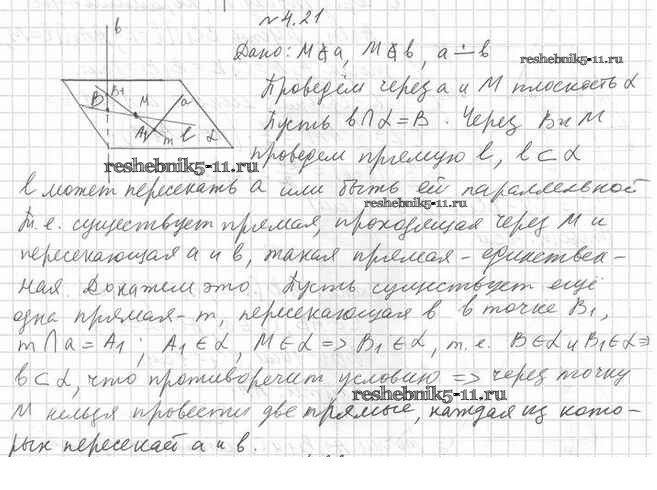 № 4.21
Дано: M∉a, M∉b, a∸b
reshebnik5-11.ru
Проведём через a и M плоскость α
Пусть b∩α=B. Через B и M
проведем прямую l, l⊂α
reshebnik5-11.ru
l может пересекать a или быть ей параллельной
reshebnik5-11.ru
Т.е. существует прямая, проходящая через M и
пересекающая a и b, такая прямая - единствен-
ная. Докажем это. Пусть существует ещё
одна прямая - m, пересекающая b в точке B₁,
m∩a=A₁; A₁∈α, M∈α => B₁∈α, т.е. B∈α и B₁∈α =>
b⊂α, что противоречит условию => через точку
reshebnik5-11.ru
M нельзя провести две прямые, каждая из кото-
рых пересекает a и b.
reshebnik5-11.ru
b
B
B₁
M
a
A₁
m
l
α